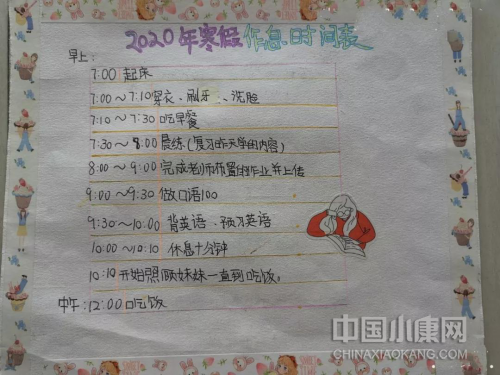 2020年寒假作息时间表
早上:
7:00 起床
7:00~7:10 穿衣、刷牙、洗脸
7:10~7:30 吃早餐
7:30~8:00 晨练(复习昨天学的内容)
8:00~9:00 完成老师布置的作业并上传
9:00~9:30 做口语100
9:30~10:00 背英语、预习英语
10:00~10:10 休息十分钟
10:10 开始照顾妹妹一直到吃饭。
中午:12:00 吃饭
中国小康网
CHINAXIAOKANG.COM